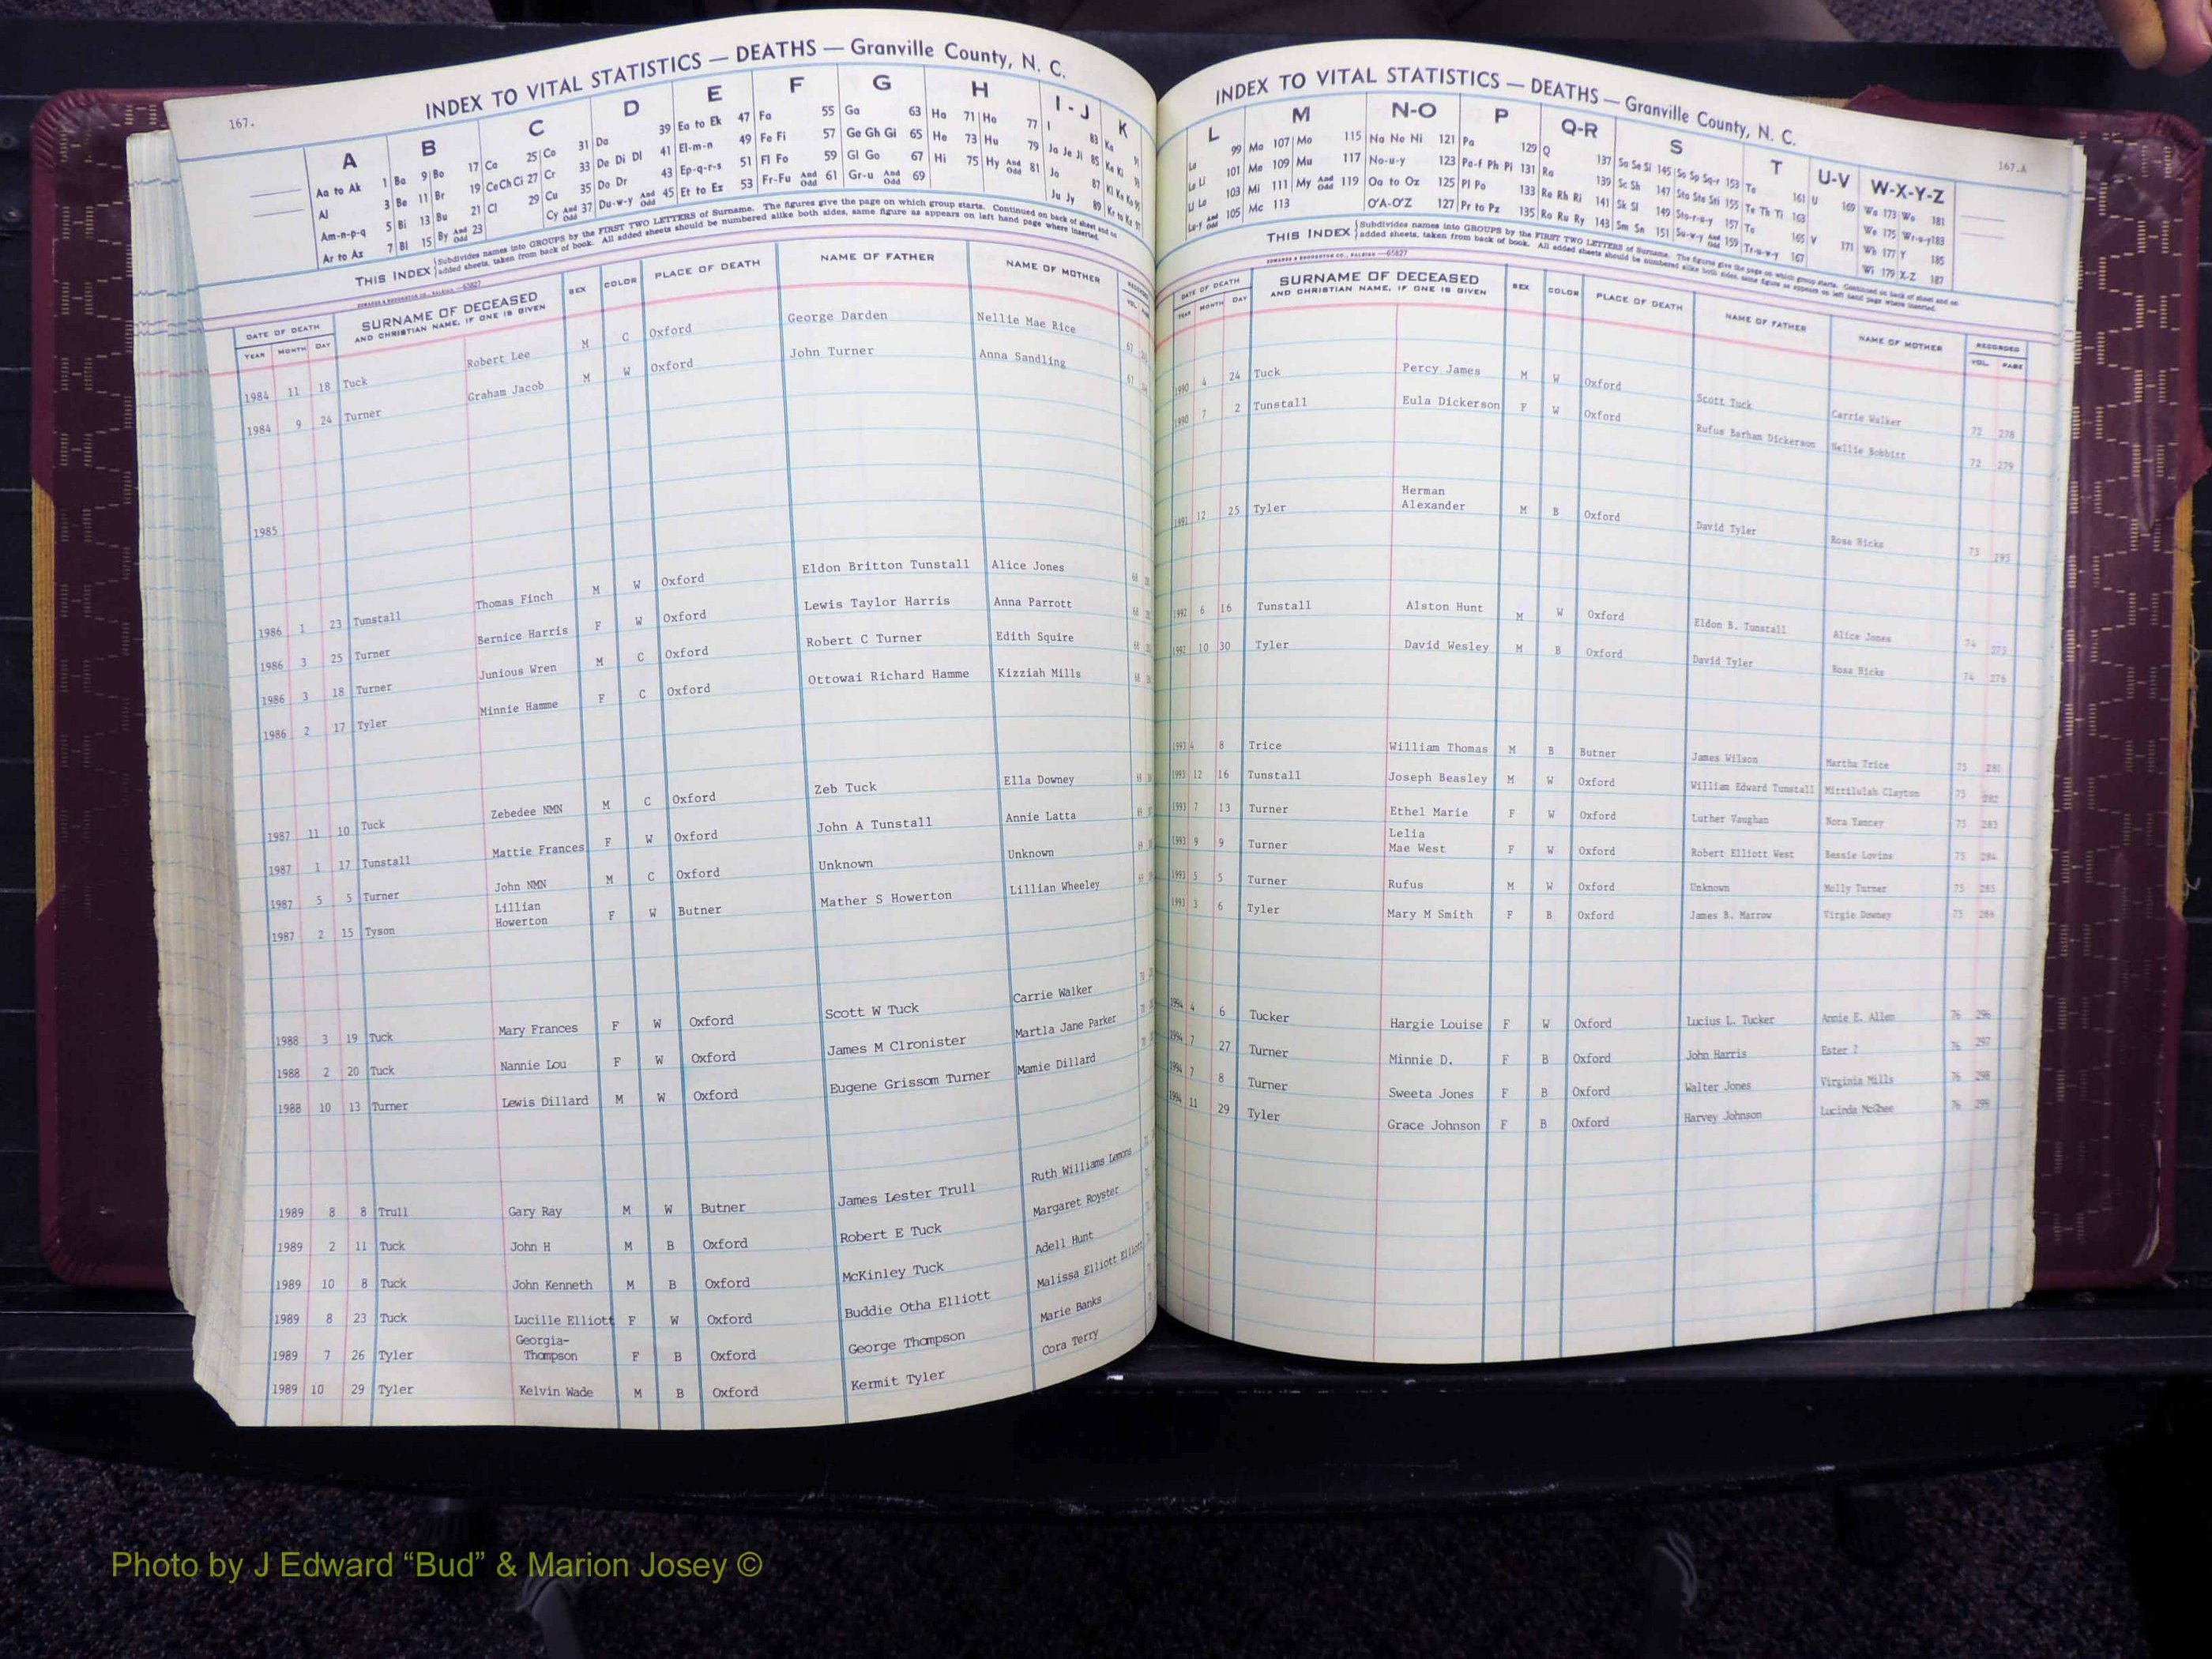 167.
INDEX TO VITAL STATISTICS — DEATHS — Granville County, N. C.
A B C D E F G H I - J K
Aa to Ak 1 Ba 9 Bo 17 Ca 25 Co 31 Da 39 Ea to Ek 47 Fa 55 Ga 63 Ha 71 Ho 77 I 83 Ka
Al 3 Be 11 Br 19 Ce Ch Ci 27 Cr 33 De Di Dl 41 El-m-n 49 Fe Fi 57 Ge Gh Gi 65 He 73 Hu 79 Ja Je Ji 85 Ke Ki
Am-n-p-q 5 Bi 13 Bu 21 Cl 29 Cu 35 Do Dr 43 Ep-q-r-s 51 Fl Fo 59 Gl Go 67 Hi 75 Hy And Odd 81 Jo 87
Ar to Az 7 Bl 15 By And Odd 23 Cy And Odd 37 Du-w-y And Odd 45 Et to Ez 53 Fr-Fu And Odd 61 Gr-u And Odd 69 Ju Jy 89
THIS INDEX Subdivides names into GROUPS by the FIRST TWO LETTERS of Surname. The figures give the page on which group starts. Continued on back of sheet and on
added sheets, taken from back of book. All added sheets should be numbered alike both sides, same figure as appears on left hand page where inserted.
DATE OF DEATH SURNAME OF DECEASED SEX COLOR PLACE OF DEATH NAME OF FATHER NAME OF MOTHER
YEAR MONTH DAY AND CHRISTIAN NAME, IF ONE IS GIVEN
1984 11 18 Tuck Robert Lee M C Oxford George Darden Nellie Mae Rice 67
1984 9 24 Turner Graham Jacob M W Oxford John Turner Anna Sandling 67
1985
1986 1 23 Tunstall Thomas Finch M W Oxford Eldon Britton Tunstall Alice Jones 68
1986 3 25 Turner Bernice Harris F W Oxford Lewis Taylor Harris Anna Parrott 68
1986 3 18 Turner Junious Wren M C Oxford Robert C Turner Edith Squire 68
1986 2 17 Tyler Minnie Hamme F C Oxford Ottowai Richard Hamme Kizziah Mills 68
1987 11 10 Tuck Zebedee NMN M C Oxford Zeb Tuck Ella Downey
1987 1 17 Tunstall Mattie Frances F W Oxford John A Tunstall Annie Latta
1987 5 5 Turner John NMN M C Oxford Unknown Unknown
1987 2 15 Tyson Lillian Howerton F W Butner Mather S Howerton Lillian Wheeley
1988 3 19 Tuck Mary Frances F W Oxford Scott W Tuck Carrie Walker
1988 2 20 Tuck Nannie Lou F W Oxford James M Clronister Martla Jane Parker
1988 10 13 Turner Lewis Dillard M W Oxford Eugene Grissom Turner Mamie Dillard
1989 8 8 Trull Gary Ray M W Butner James Lester Trull Ruth Williams Lemons
1989 2 11 Tuck John H M B Oxford Robert E Tuck Margaret Royster
1989 10 8 Tuck John Kenneth M B Oxford McKinley Tuck Adell Hunt
1989 8 23 Tuck Lucille Elliott F W Oxford Buddie Otha Elliott Malissa Elliott Elliott
1989 7 26 Tyler Georgia- Thompson F B Oxford George Thompson Marie Banks
1989 10 29 Tyler Kelvin Wade M B Oxford Kermit Tyler Cora Terry
INDEX TO VITAL STATISTICS — DEATHS — Granville County, N. C.
167.A
L M N-O P Q-R S T U-V W-X-Y-Z
La 99 Ma 107 Mo 115 Na Ne Ni 121 Pa 129 Q 137 Sa Se Si 145 So Sp Sq-r 153 Ta 161 U 169 Wa 173 Wo 181
Le Li 101 Me 109 Mu 117 No-u-y 123 Pe-f Ph Pi 131 Ra 139 Sc Sh 147 Sta Ste Sti 155 Te Th Ti 163 We 175 Wr-u-y 183
Ll Lo 103 Mi 111 My And Odd 119 Oa to Oz 125 Pl Po 133 Re Rh Ri 141 Sk Sl 149 Sto-r-u-y 157 To 165 V 171 Wh 177 Y 185
Lu-y And Odd 105 Mc 113 O'A-O'Z 127 Pr to Pz 135 Ro Ru Ry 143 Sm Sn 151 Su-w-y And Odd 159 Tr-u-w-y 167 Wi 179 X-Z 187
THIS INDEX Subdivides names into GROUPS by the FIRST TWO LETTERS of Surname. The figures give the page on which group starts. Continued on back of sheet and on
added sheets, taken from back of book. All added sheets should be numbered alike both sides, same figure as appears on left hand page where inserted.
DATE OF DEATH SURNAME OF DECEASED SEX COLOR PLACE OF DEATH NAME OF FATHER NAME OF MOTHER RECORDED
YEAR MONTH DAY AND CHRISTIAN NAME, IF ONE IS GIVEN VOL. PAGE
1990 4 24 Tuck Percy James M W Oxford Scott Tuck Carrie Walker 72 278
1990 7 2 Tunstall Eula Dickerson F W Oxford Rufus Barham Dickerson Nellie Bobbitt 72 279
1991 12 25 Tyler Herman Alexander M B Oxford David Tyler Rosa Hicks 73 293
1992 6 16 Tunstall Alston Hunt M W Oxford Eldon B. Tunstall Alice Jones 74 275
1992 10 30 Tyler David Wesley M B Oxford David Tyler Rosa Hicks 74 276
1993 4 8 Trice William Thomas M B Butner James Wilson Martha Trice 75 281
1993 12 16 Tunstall Joseph Beasley M W Oxford William Edward Tunstall Mittilulah Clayton 75 282
1993 7 13 Turner Ethel Marie F W Oxford Luther Vaughan Nora Yancey 75 283
1993 9 9 Turner Lelia Mae West F W Oxford Robert Elliott West Bessie Lovins 75 284
1993 5 5 Turner Rufus M W Oxford Unknown Molly Turner 75 285
1993 3 6 Tyler Mary M Smith F B Oxford James B. Marrow Virgie Downey 75 286
1994 4 6 Tucker Hargie Louise F W Oxford Lucius L. Tucker Annie E. Allen 76 296
1994 7 27 Turner Minnie D. F B Oxford John Harris Ester ? 76 297
1994 7 8 Turner Sweeta Jones F B Oxford Walter Jones Virginia Mills 76 298
1994 11 29 Tyler Grace Johnson F B Oxford Harvey Johnson Lucinda McGhee 76 299
Photo by J Edward “Bud” & Marion Josey ©